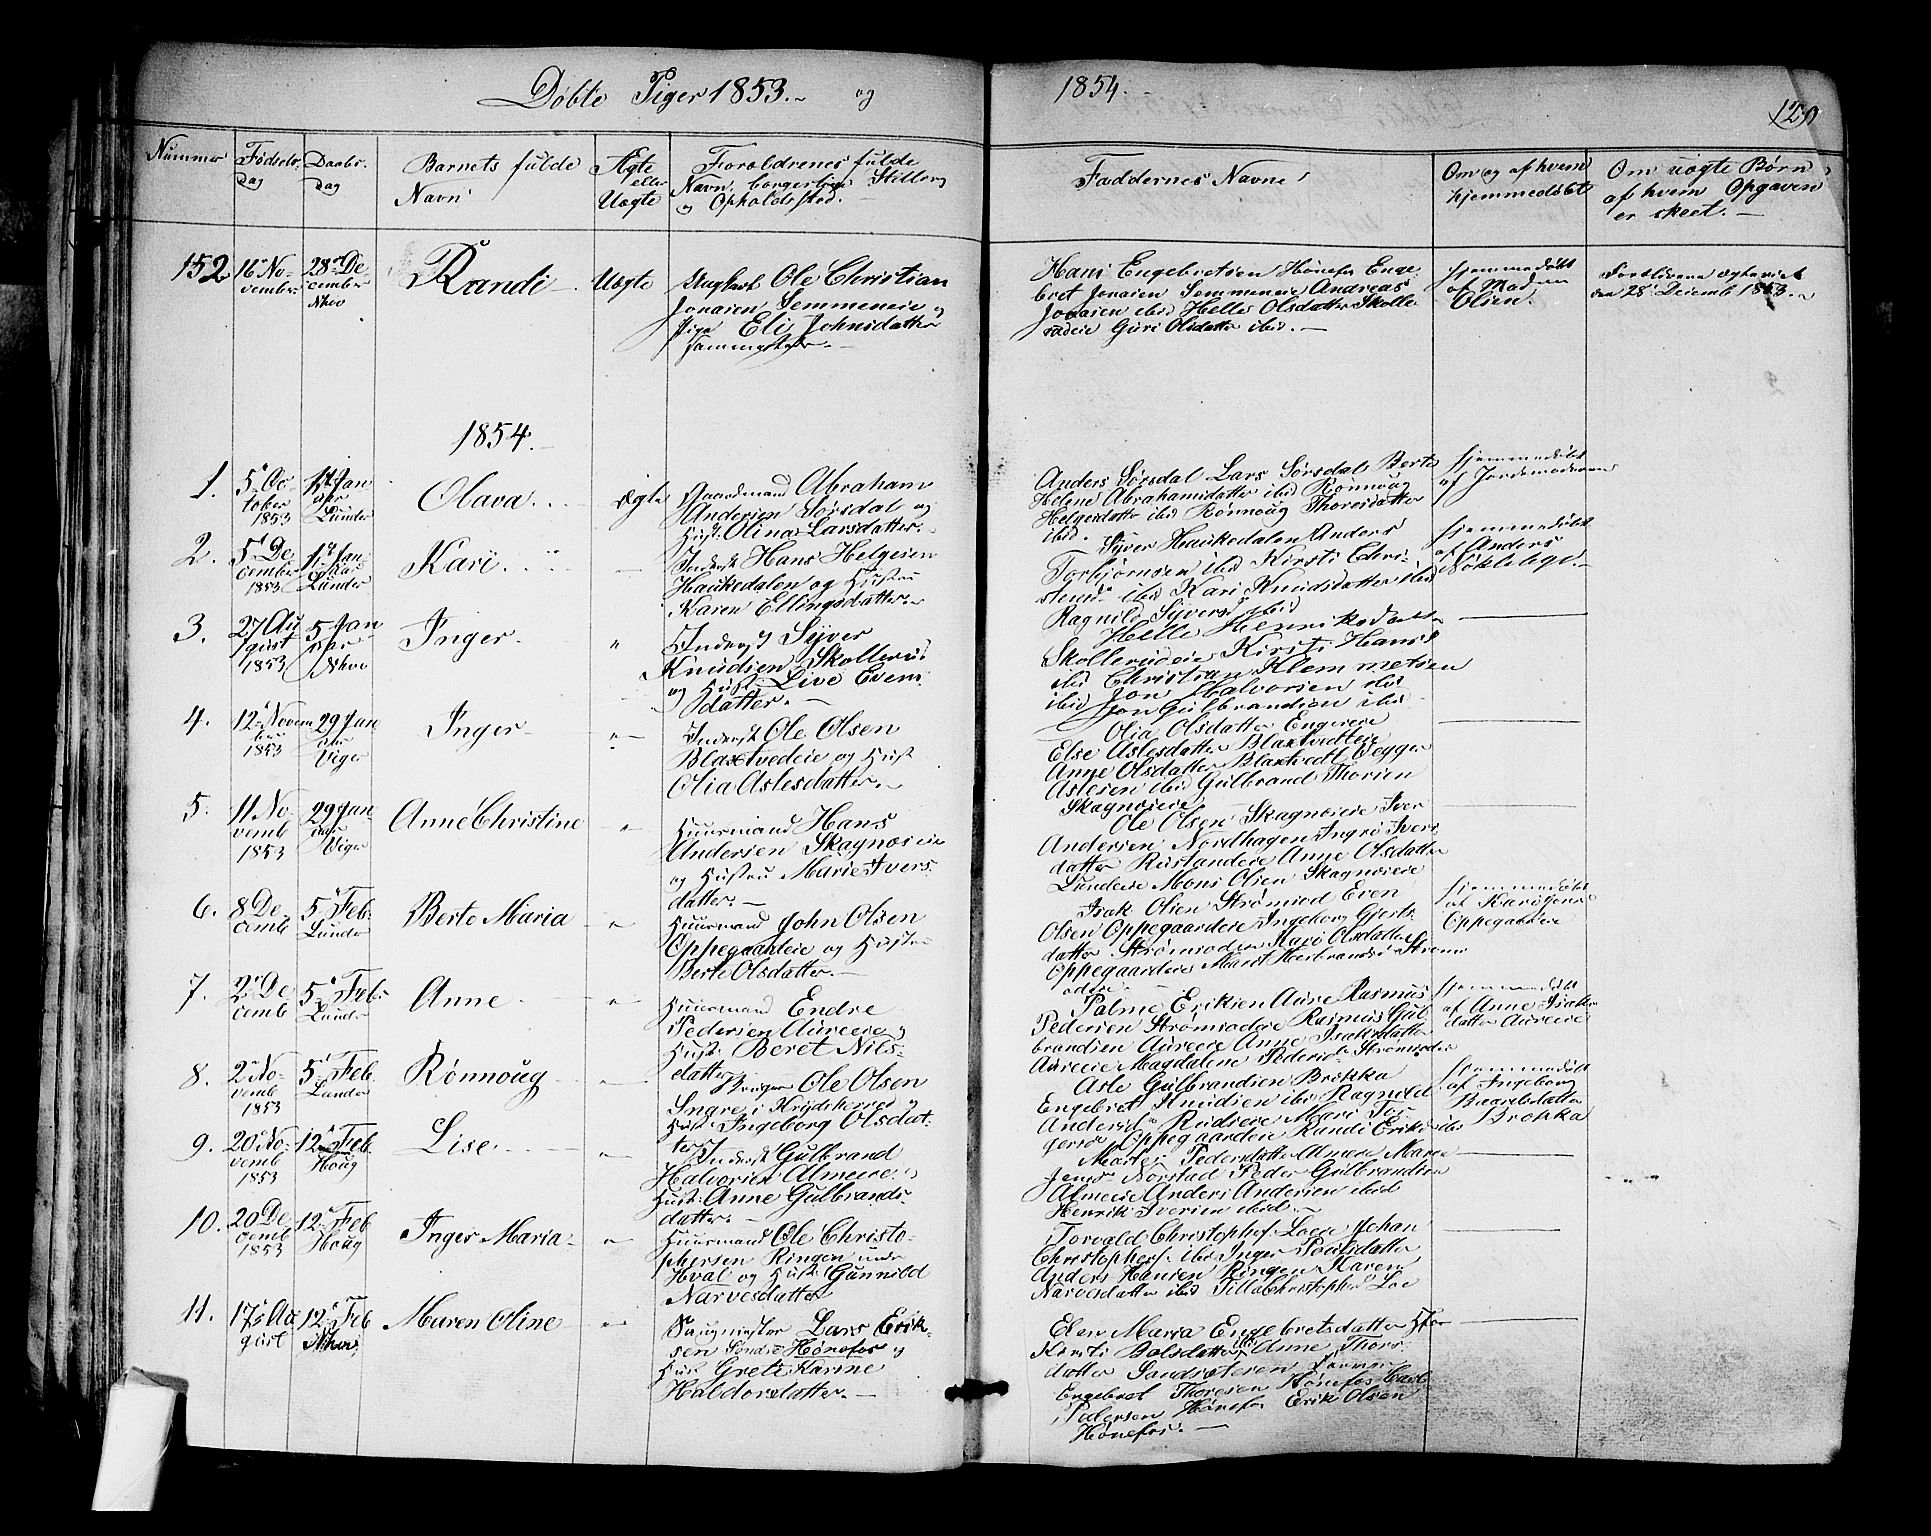 Døbte Piger 1853. og 1854.
120
Nummer
Fødsels-
Dag
Daabs-
Dag
Barnets fulde
Navn
Ægte
eller
Uægte
Forældrenes fulde
Navn, borgerlige Stilling
og Opholdssted.
Faddernes Navne
Om og af hvem
hjemmedøbt
Om uægte Børn
af hvem Opgaven
er skeet.
152
16 No-
vember
28 De-
cember
Nhov
Randi
Uægte
Ungkarl Ole Christian
Jonasen Semmeneie og
Pige Eli Johnsdatter
sammesteds.
Hans Engebretsen Hønefos Enge-
bret Jonasen Semmeneie Andreas
Jonasen ibid Helle Olsdatter Skolle-
rudeie Guri Olsdatter ibid.
Hjemmedøbt
af Madm
Olsen.
Forældrene ægteviet
den 28 Decemb 1853.
1854.
1.
5 Oc-
tober
1853
1 Jan
uar
Lunder
Olava
ægte
Gaardmand Abraham
Andersen Sørsdal og
Hust. Olina Larsdatter.
Anders Sørsdal Lars Sørsdal Berte
Helene Abrahamsdatter ibid Rønnoug
Helgesdatter ibid Rønnoug Thoresdatter
ibid.
Hjemmedøbt
af Jordemoderen
2.
5 De
cember
1853
1 Jan
uar
Lunder
Kari
Inderst Hans Helgesen
Haukedalen og Hustru
Karen Ellingsdatter.
Syver Haukedalen Anders
Torbjørnsen ibid Kirsti Chri-
stensd. ibid Kari Knudsdatter ibid
Ragnild Syversd ibid
Hjemmedøbt
af Anders
Søklebye.
3.
27 Au
gust
1853
5 Jan
uar
Nhov
Inger
Inderst Syver
Knudsen Skollerud
og Hust. Live Evens
datter.
Helle Henriksdatter
Skollerudeie Kirsti Hansd
ibid Christian Klemmetsen
ibid Jon Halvorsen ibid
Jon Gulbrandsen ibid.
4.
12 Novem
ber
1853
29 Jan
uar
Viger
Inger
Inderst Ole Olsen
Blaxtvedeie og Hust
Olia Aslesdatter.
Olia Olsdatter Engereie
Else Aslesdatter Blaxtvedteie
Anne Olsdatter Blaxtvedt Vegger
Aslesen ibid Gulbrand Thorsen
Skagnæseie
5.
11 No
vemb
1853
29 Jan
uar
Viger
Anne Christine
Huusmand Hans
Andersen Skagnæseie
og Hustru Marie Ivers
datter.
Ole Olsen Skagnæseie Iver
Andersen Nordhagen Ingri Ivers
datter Rustandeie Anne Olsdatter
Lundeie Mons Olsen Skagnæseie
6.
8 De
cemb
5 Feb.
Lunder
Berte Maria
Huusmand John Olsen
Oppegaardeie og Hustru
Berte Olsdatter.
Isak Olsen Strømsod Even
Olsen Oppegaardeie Ingeborg Gjerts
datter Strømsoden Kari Olsdatter
Oppegaardeie Marit Herbrandsd Strøms
odeie.
Hjemmedøbt
af
Oppegaardeie
7.
2 De
cemb
5 Feb.
Lunder
Anne
Huusmand Endre
Pedersen Aureeie og
Hust. Beret Nils-
datter
Palme Eriksen Aure Rasmus
Pedersen Strømsodeie Rasmus Gul
brandsen Aureeie Anne Isaksdatter
Aureeie Magdalene Pedersd Strømsoden
Hjemmedøbt
af Anne Isaks
datter Aureeie
8.
2 No-
vemb
1853
5 Feb
Lunder
Rønnoug
Bruger Ole Olsen
Sngre i Krydsherred og
Hust Ingeborg Olsdat
ter
Asle Gulbrandsen Brokka
Engebret Knudsen ibid Ragnild
Andersd Rudseie Mari Tor
gersd Oppegaarden Randi Eriksd ibid
Hjemmedøbt
af Ingeborg
Baardsdatter
Brokka
9.
20 No-
vemb
1853
12 Feb.
Houg
Lise
Inderst Gulbrand
Halvorsen Almeie og
Hust. Anne Gulbrands
datter.
Marte Pedersdatter Almeie Maren
Jensd Norstad Peder Gulbrandsen
Almeie Anders Andersen ibid
Henrik Iversen ibid.
10.
20 De
cemb
1853
12 Feb
Houg
Inger Maria
Huusmand Ole Christo-
phersen Ringen under
Hval og Hust Gunnild
Narvesdatter
Torvald Christophers Loeie Johan
Christophers ibid Inger Poulsdatter
Anders Hansen Ringen Maren
Narvesdatter ibid Silla Christophersd Loe
11.
17 Au
gust
12 Feb
Nhov
Maren Oline
Saugmester Lars Erik-
sen Søndre Hønefos og
Hust Grete Karine
Haldorsdatter.
Elen Maria Engebretsdatter
Kirsti Bolsdatter ibid Anne Thors
datter Sandsæteren
Engebret Thoresen Hønefos Carl
Pedersen Hønefos Erik Olsen
Hønefos.